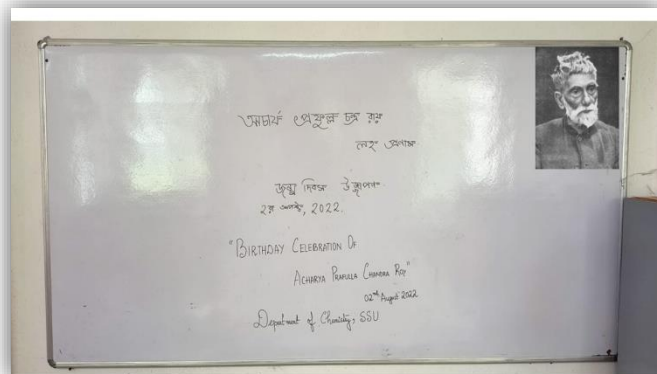 আচার্য প্রফুল্ল চন্দ্র রায়
লহ প্রণাম
জন্ম দিবস উদ্‌যাপন
২রা অগস্ট, 2022.
"BIRTHDAY CELEBRATION OF
ACHARYA PRAFULLA CHANDRA ROY"
02nd August 2022
Department of Chemistry, SSU